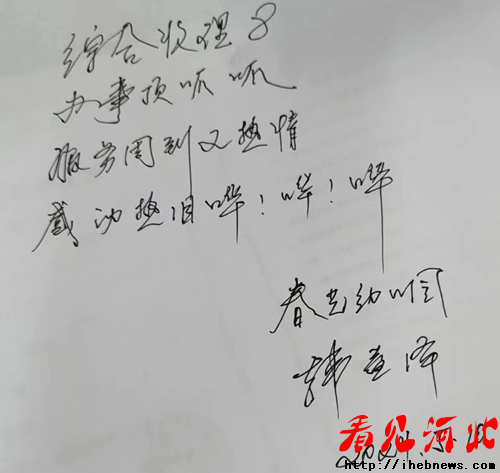 综合收理8
办事顶呱呱
服务周到又热情
感动热泪哗！哗！哗
春艺幼川园
韩
看见河北
http://ihebnews.com